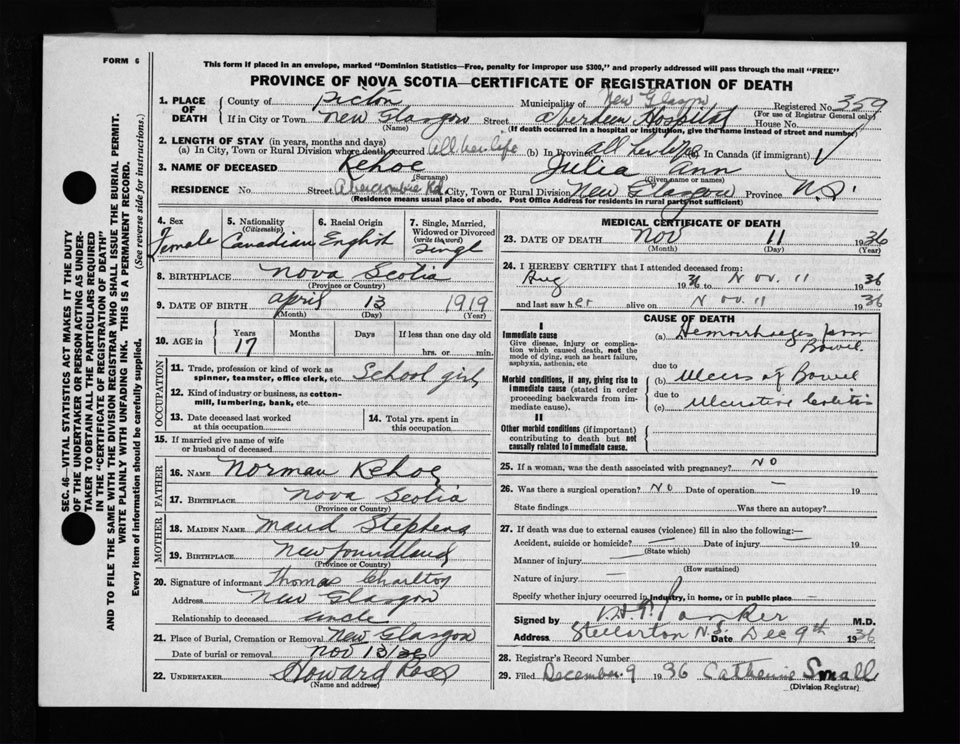 FORM 6
This form if placed in an envelope, marked "Dominion Statistics—Free, penalty for improper use $300," and properly addressed will pass through the mail "FREE"
PROVINCE OF NOVA SCOTIA—CERTIFICATE OF REGISTRATION OF DEATH
SEC. 46—VITAL STATISTICS ACT MAKES IT THE DUTY
OF THE UNDERTAKER OR PERSON ACTING AS UNDER-
TAKER TO OBTAIN ALL THE PARTICULARS REQUIRED
IN THE "CERTIFICATE OF REGISTRATION OF DEATH"
AND TO FILE THE SAME WITH THE DIVISION REGISTRAR WHO SHALL ISSUE THE BURIAL PERMIT.
WRITE PLAINLY WITH UNFADING INK. THIS IS A PERMANENT RECORD.
Every item of information should be carefully supplied. (See reverse side for instructions.)
1. PLACE OF DEATH County of Pictou Municipality of New Glasgow Registered No. 359
(For use of Registrar General only)
If in City or Town New Glasgow Street Aberdeen Hospital House No.
(Name) (If death occurred in a hospital or institution, give the name instead of street and number)
2. LENGTH OF STAY (in years, months and days)
(a) In City, Town or Rural Division where death occurred all her life (b) In Province all her life (c) In Canada (if immigrant)
3. NAME OF DECEASED Kehoe Julia Ann
(Surname) (Given name or names)
RESIDENCE No. Street Abercrombie Rd. City, Town or Rural Division New Glasgow Province N.S.
(Residence means usual place of abode. Post Office Address for residents in rural parts not sufficient)
4. Sex Female
5. Nationality (Citizenship) Canadian
6. Racial Origin English
7. Single, Married, Widowed or Divorced (write the word) Single
8. BIRTHPLACE Nova Scotia
(Province or Country)
9. DATE OF BIRTH April 13 1919
(Month) (Day) (Year)
10. AGE in Years Months Days If less than one day old
17 hrs. or min.
OCCUPATION
11. Trade, profession or kind of work as
spinner, teamster, office clerk, etc. School girl
12. Kind of industry or business, as cotton-
mill, lumbering, bank, etc.
13. Date deceased last worked at this occupation
14. Total yrs. spent in this occupation
15. If married give name of wife
or husband of deceased
FATHER
16. NAME Norman Kehoe
17. BIRTHPLACE Nova Scotia
(Province or Country)
MOTHER
18. MAIDEN NAME Maud Stephens
19. BIRTHPLACE Newfoundland
(Province or Country)
20. Signature of informant Thomas Charlton
Address New Glasgow
Relationship to deceased uncle
21. Place of Burial, Cremation or Removal New Glasgow
Date of burial or removal Nov 13/36
22. UNDERTAKER Howard Ross
(Name and address)
MEDICAL CERTIFICATE OF DEATH
23. DATE OF DEATH Nov 11 1936
(Month) (Day) (Year)
24. I HEREBY CERTIFY that I attended deceased from:
Aug 1936 to Nov. 11 1936
and last saw her alive on Nov. 11 1936
CAUSE OF DEATH
I
Immediate cause
Give disease, injury or complica-
tion which caused death, not the
mode of dying, such as heart failure,
asphyxia, asthenia, etc
(a) Hemorrhages from
Bowel
due to
Morbid conditions, if any, giving rise to
immediate cause (stated in order
proceeding backwards from im-
mediate cause).
(b) Ulcers of Bowel
due to
(c) Ulcerative Colitis
II
Other morbid conditions (if important)
contributing to death but not
causally related to immediate cause.
25. If a woman, was the death associated with pregnancy? NO
26. Was there a surgical operation? NO Date of operation — 19
State findings Was there an autopsy?
27. If death was due to external causes (violence) fill in also the following:—
Accident, suicide or homicide? — Date of injury — 19
(State which)
Manner of injury —
(How sustained)
Nature of injury —
Specify whether injury occurred in industry, in home, or in public place —
Signed by Parker M.D.
Address Stellarton N.S. Date Dec 9th 1936
28. Registrar's Record Number
29. Filed December 9 1936 Catherine Small
(Division Registrar)